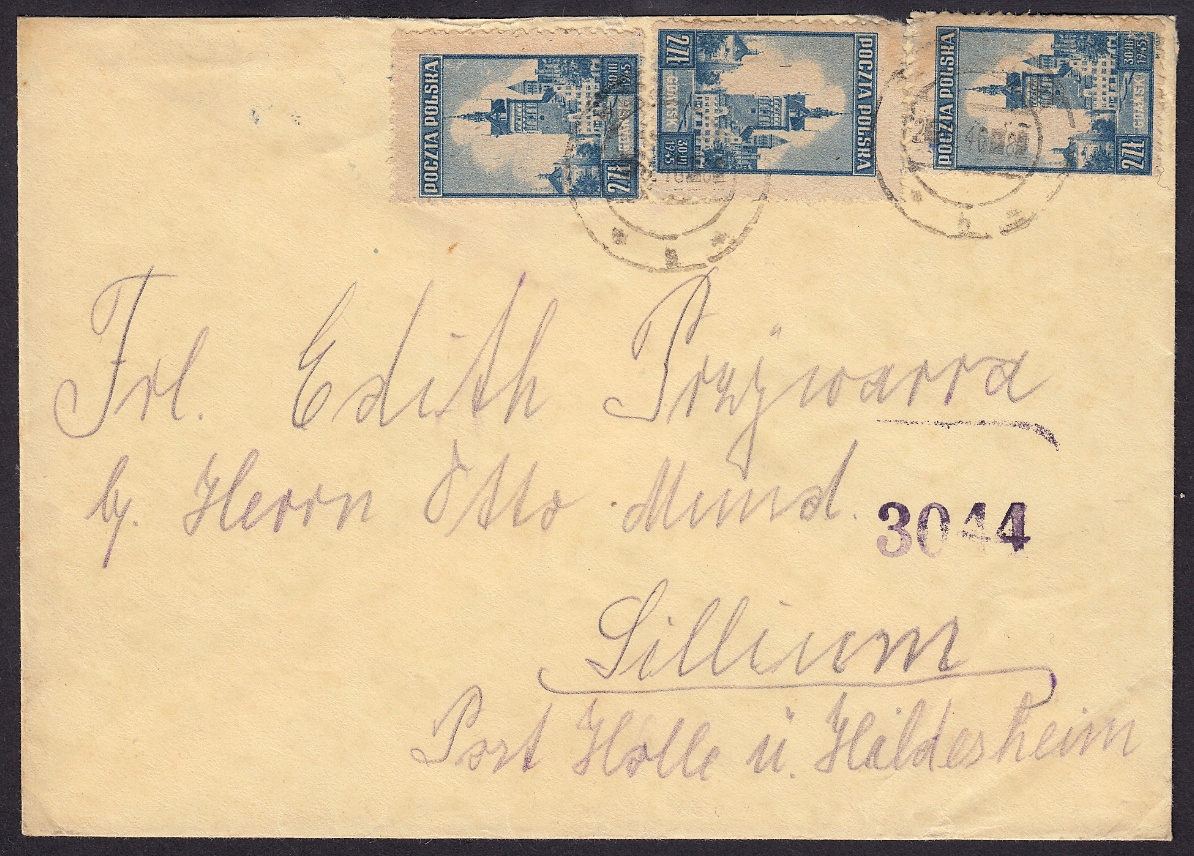 POCZTA POLSKA
30 III 1945
GDAŃSK
2 ZŁ
POCZTA POLSKA
30 III 1945
GDAŃSK
2 ZŁ
POCZTA POLSKA
30 III 1945
GDAŃSK
2 ZŁ
Frl. Edith Przywarra
by. Herrn Otto Mund.
3044
Sillium
Post Holle ü. Hildesheim